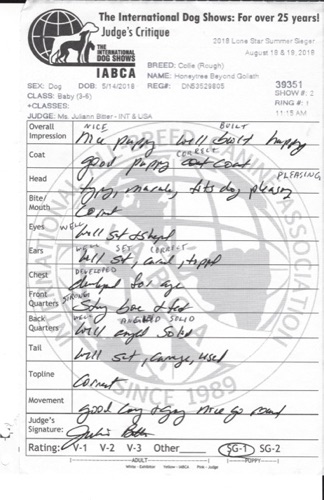 The International Dog Shows: For over 25 years!
Judge's Critique
THE
INTERNATIONAL
DOG SHOWS
IABCA
2018 Lone Star Summer Sieger
August 18 & 19, 2018
BREED: Collie (Rough)
NAME: Honeytree Beyond Goliath
SEX: Dog DOB: 5/14/2018 REG#: DN53529805 39351
CLASS: Baby (3-6) SHOW #: 2
+CLASSES: RING #: 1
JUDGE: Ms. Juliann Bitter - INT & USA 11:15 AM
Overall
Impression
NICE BUILT
Nice puppy well built happy
Coat
CORRECT
good puppy coat
Head
PLEASING
type, muzzle, fits dog pleasing
Bite/
Mouth
Correct
Eyes
WELL
well set & shaped
Ears
WELL SET CORRECT
well set, tipped
Chest
DEVELOPED
developed for age
Front
Quarters
STRONG
Strong bone & feet
Back
Quarters
WELL ANGLED SOLID
well angled Solid
Tail
well set, carriage, used
Topline
Correct
Movement
good nice go round
Judge's
Signature:
Rating: V-1 V-2 V-3 Other SG-1 SG-2
ADULT PUPPY
White - Exhibitor Yellow - IABCA Pink - Judge
INTERNATIONAL ALL BREED CANINE ASSOCIATION
SINCE 1989